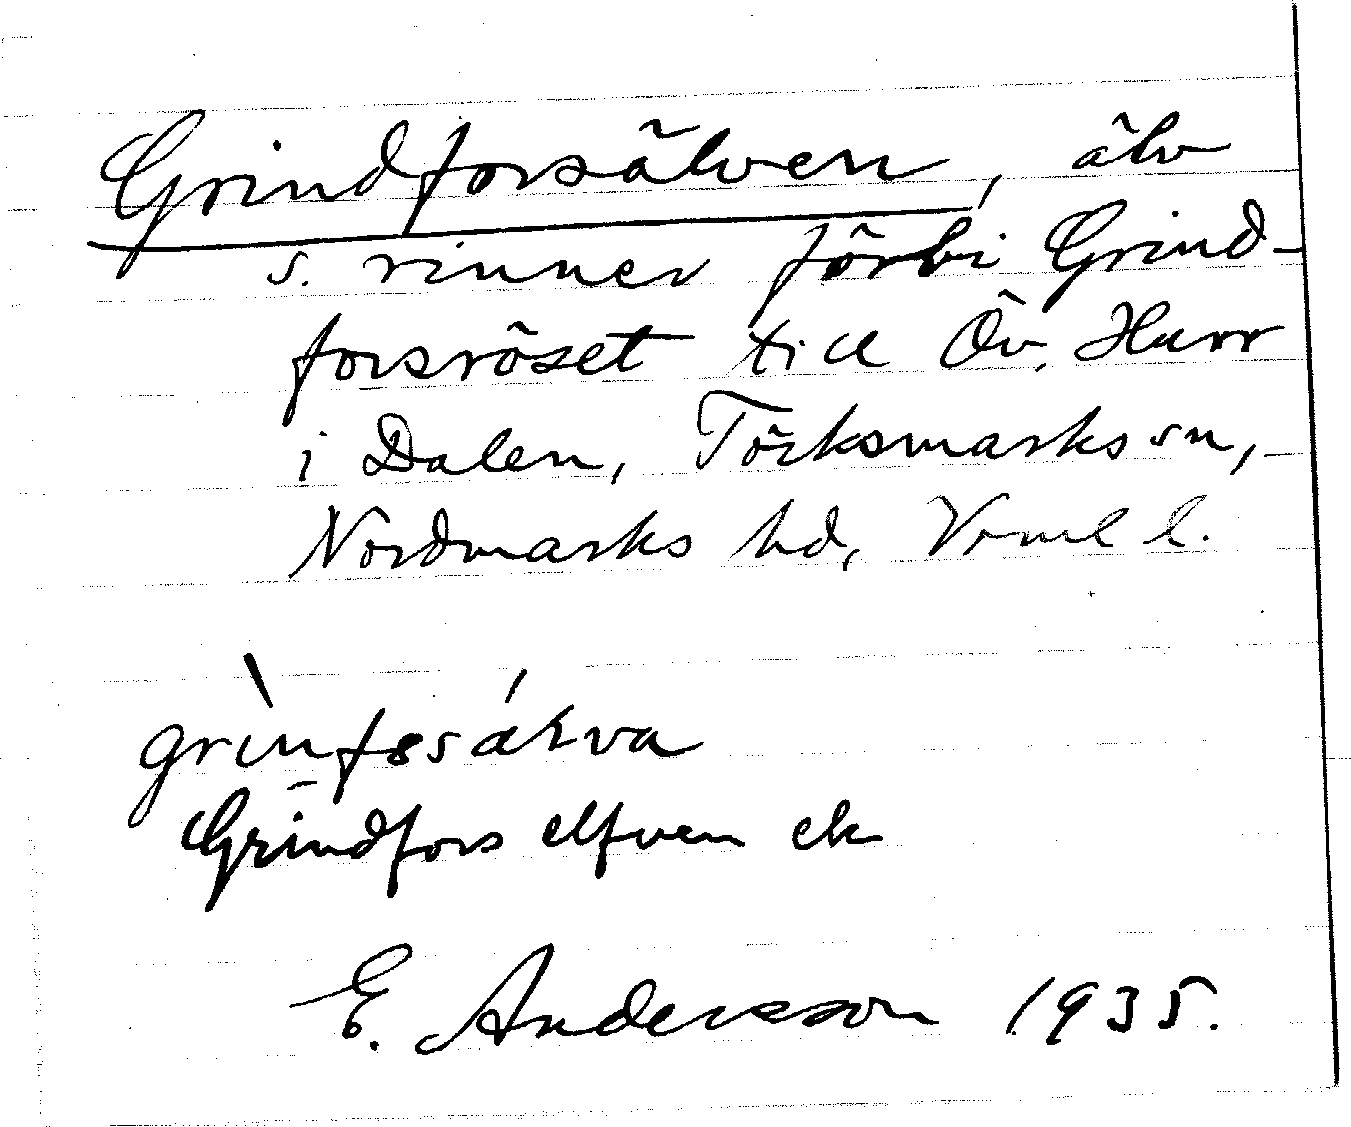 Grindforsälven, älv
s. rinner förbi Grind-
forsröset till Öv. Hurr
i Dalen, Töcksmarks sn,
Nordmarks hd, Vrml l.
Grindfors elfven ek
E. Andersson 1935.